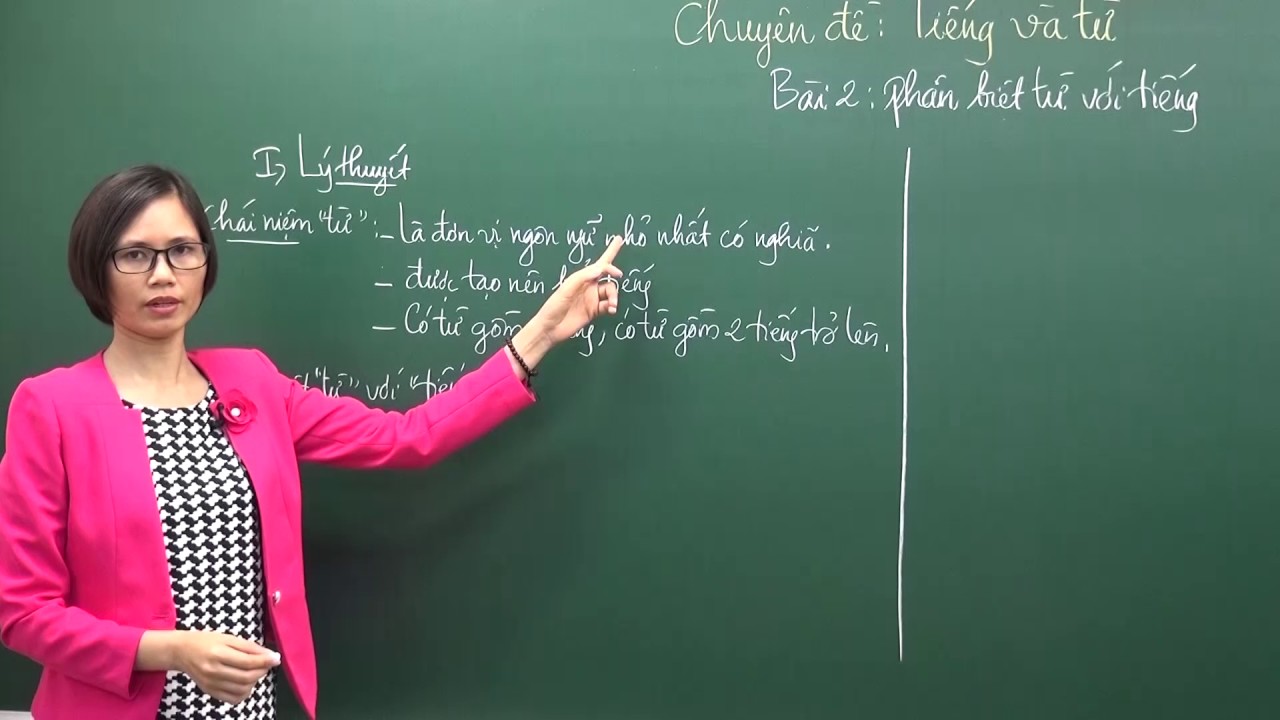 Chuyên đề: Tiếng và từ
Bài 2: phân biệt từ với tiếng
I, Lý thuyết
niệm "từ": - Là đơn vị ngôn ngữ nhỏ nhất có nghĩa.
- được tạo nên tiếng
- Có từ gồm , có từ gồm 2 tiếng trở lên.
"từ" với